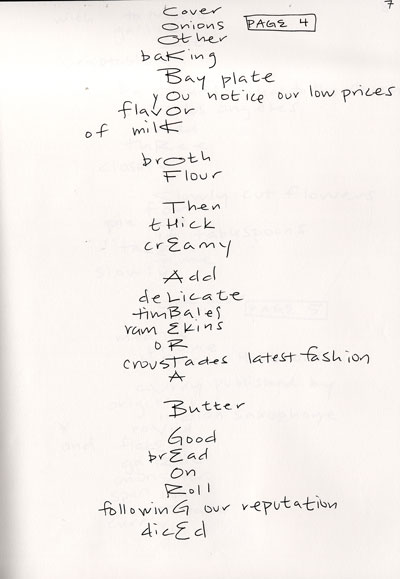 7
Cover
Onions PAGE 4
Other
baKing
Bay plate
yOu notice our low prices
flavOr
of milK
brOth
Flour
Then
tHick
crEamy
Add
deLicate
timBales
ram Ekins
oR
crousTades latest fashion
A
Butter
Good
brEad
On
Roll
followinG our reputation
dicEd